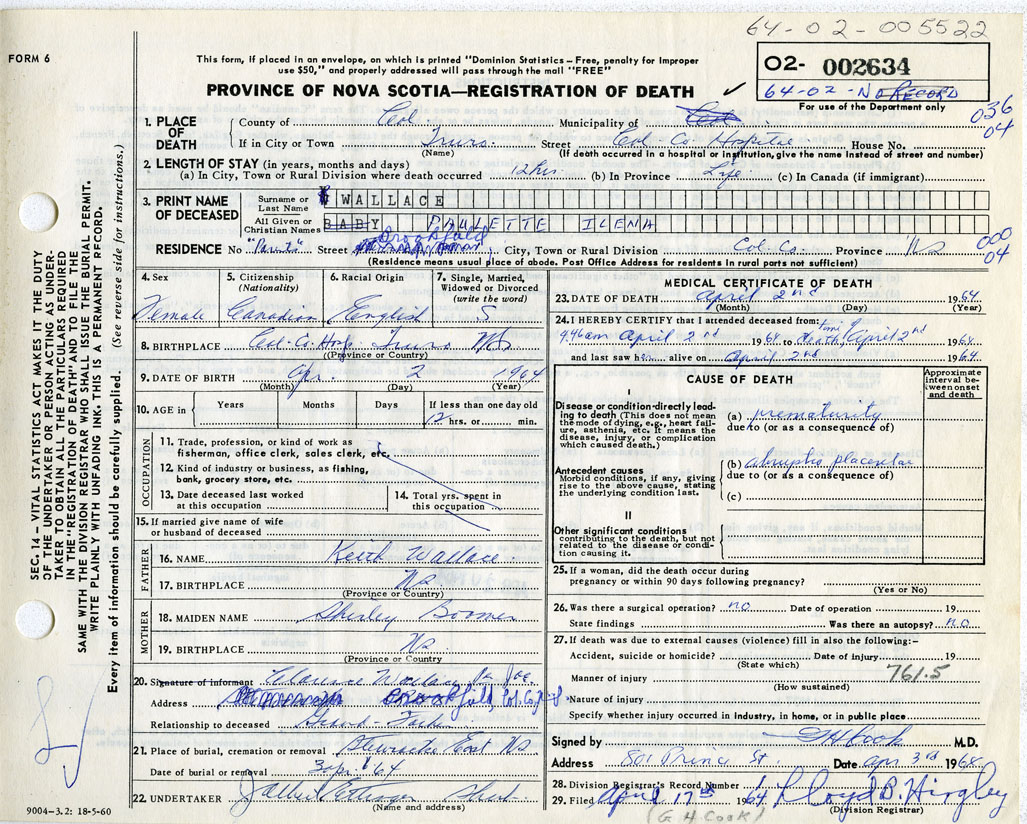 64-02-005522
FORM 6
This form, if placed in an envelope, on which is printed "Dominion Statistics – Free, penalty for improper
use $50," and properly addressed will pass through the mail "FREE"
O2- 002634
64-02-No RECORD
PROVINCE OF NOVA SCOTIA—REGISTRATION OF DEATH
For use of the Department only
036
04
1. PLACE OF DEATH
County of Col. Municipality of
If in City or Town Truro. Street Col. Co. Hospital House No.
(Name) (If death occurred in a hospital or institution, give the name instead of street and number)
2. LENGTH OF STAY (in years, months and days)
(a) In City, Town or Rural Division where death occurred 12 hrs. (b) In Province Life (c) In Canada (if immigrant)
3. PRINT NAME OF DECEASED
Surname or Last Name WALLACE
All Given or Christian Names BABY PAULETTE ILENA
RESIDENCE No. "Parents" Street Brookfield City, Town or Rural Division Col. Co. Province NS
(Residence means usual place of abode. Post Office Address for residents in rural parts not sufficient)
000
04
4. Sex Female
5. Citizenship (Nationality) Canadian
6. Racial Origin English
7. Single, Married, Widowed or Divorced (write the word) S
8. BIRTHPLACE Col. Co. Hosp. Truro NS
(Province or Country)
9. DATE OF BIRTH Apr. 2 1964
(Month) (Day) (Year)
10. AGE in Years Months Days If less than one day old
12 hrs. or min.
OCCUPATION
11. Trade, profession, or kind of work as fisherman, office clerk, sales clerk, etc.
12. Kind of industry or business, as fishing, bank, grocery store, etc.
13. Date deceased last worked at this occupation
14. Total yrs. spent in this occupation
15. If married give name of wife or husband of deceased
FATHER
16. NAME Keith Wallace.
17. BIRTHPLACE NS
(Province or Country)
MOTHER
18. MAIDEN NAME Shirley Boomer
19. BIRTHPLACE NS
(Province or Country)
20. Signature of informant Clarence Wallace
Address Brookfield, Col. Co.
Relationship to deceased Grand-
21. Place of burial, cremation or removal Stewiacke East NS
Date of burial or removal 3 apr. 64
22. UNDERTAKER
(Name and address)
9004-3.2: 18-5-60
MEDICAL CERTIFICATE OF DEATH
23. DATE OF DEATH April 2nd 1964
(Month) (Day) (Year)
24. I HEREBY CERTIFY that I attended deceased from:
9.46 am April 2nd 1964 to time death, April 2nd 1964
and last saw h alive on April 2nd 1964
CAUSE OF DEATH
Approximate interval between onset and death
I
Disease or condition directly leading to death (This does not mean the mode of dying, e.g., heart failure, asthenia, etc. It means the disease, injury, or complication which caused death.)
(a) prematurity
due to (or as a consequence of)
Antecedent causes
Morbid conditions, if any, giving rise to the above cause, stating the underlying condition last.
(b) abruptio placentae
due to (or as a consequence of)
(c)
II
Other significant conditions contributing to the death, but not related to the disease or condition causing it.
25. If a woman, did the death occur during pregnancy or within 90 days following pregnancy?
(Yes or No)
26. Was there a surgical operation? no Date of operation 19
State findings Was there an autopsy? no
27. If death was due to external causes (violence) fill in also the following:–
Accident, suicide or homicide? Date of injury 19
(State which)
761.5
Manner of injury
(How sustained)
Nature of injury
Specify whether injury occurred in industry, in home, or in public place
Signed by G H Cook M.D.
Address 801 Prince St. Date Apr 3rd 1964
28. Division Registrar's Record Number
29. Filed April 17th 1964 Lloyd B. Hingley
(G H COOK) (Division Registrar)
SEC. 14 – VITAL STATISTICS ACT MAKES IT THE DUTY
OF THE UNDERTAKER OR PERSON ACTING AS UNDER-
TAKER TO OBTAIN ALL THE PARTICULARS REQUIRED
IN THE "REGISTRATION OF DEATH" AND TO FILE THE
SAME WITH THE DIVISION REGISTRAR WHO SHALL ISSUE THE BURIAL PERMIT.
WRITE PLAINLY WITH UNFADING INK. THIS IS A PERMANENT RECORD.
Every item of information should be carefully supplied. (See reverse side for instructions.)